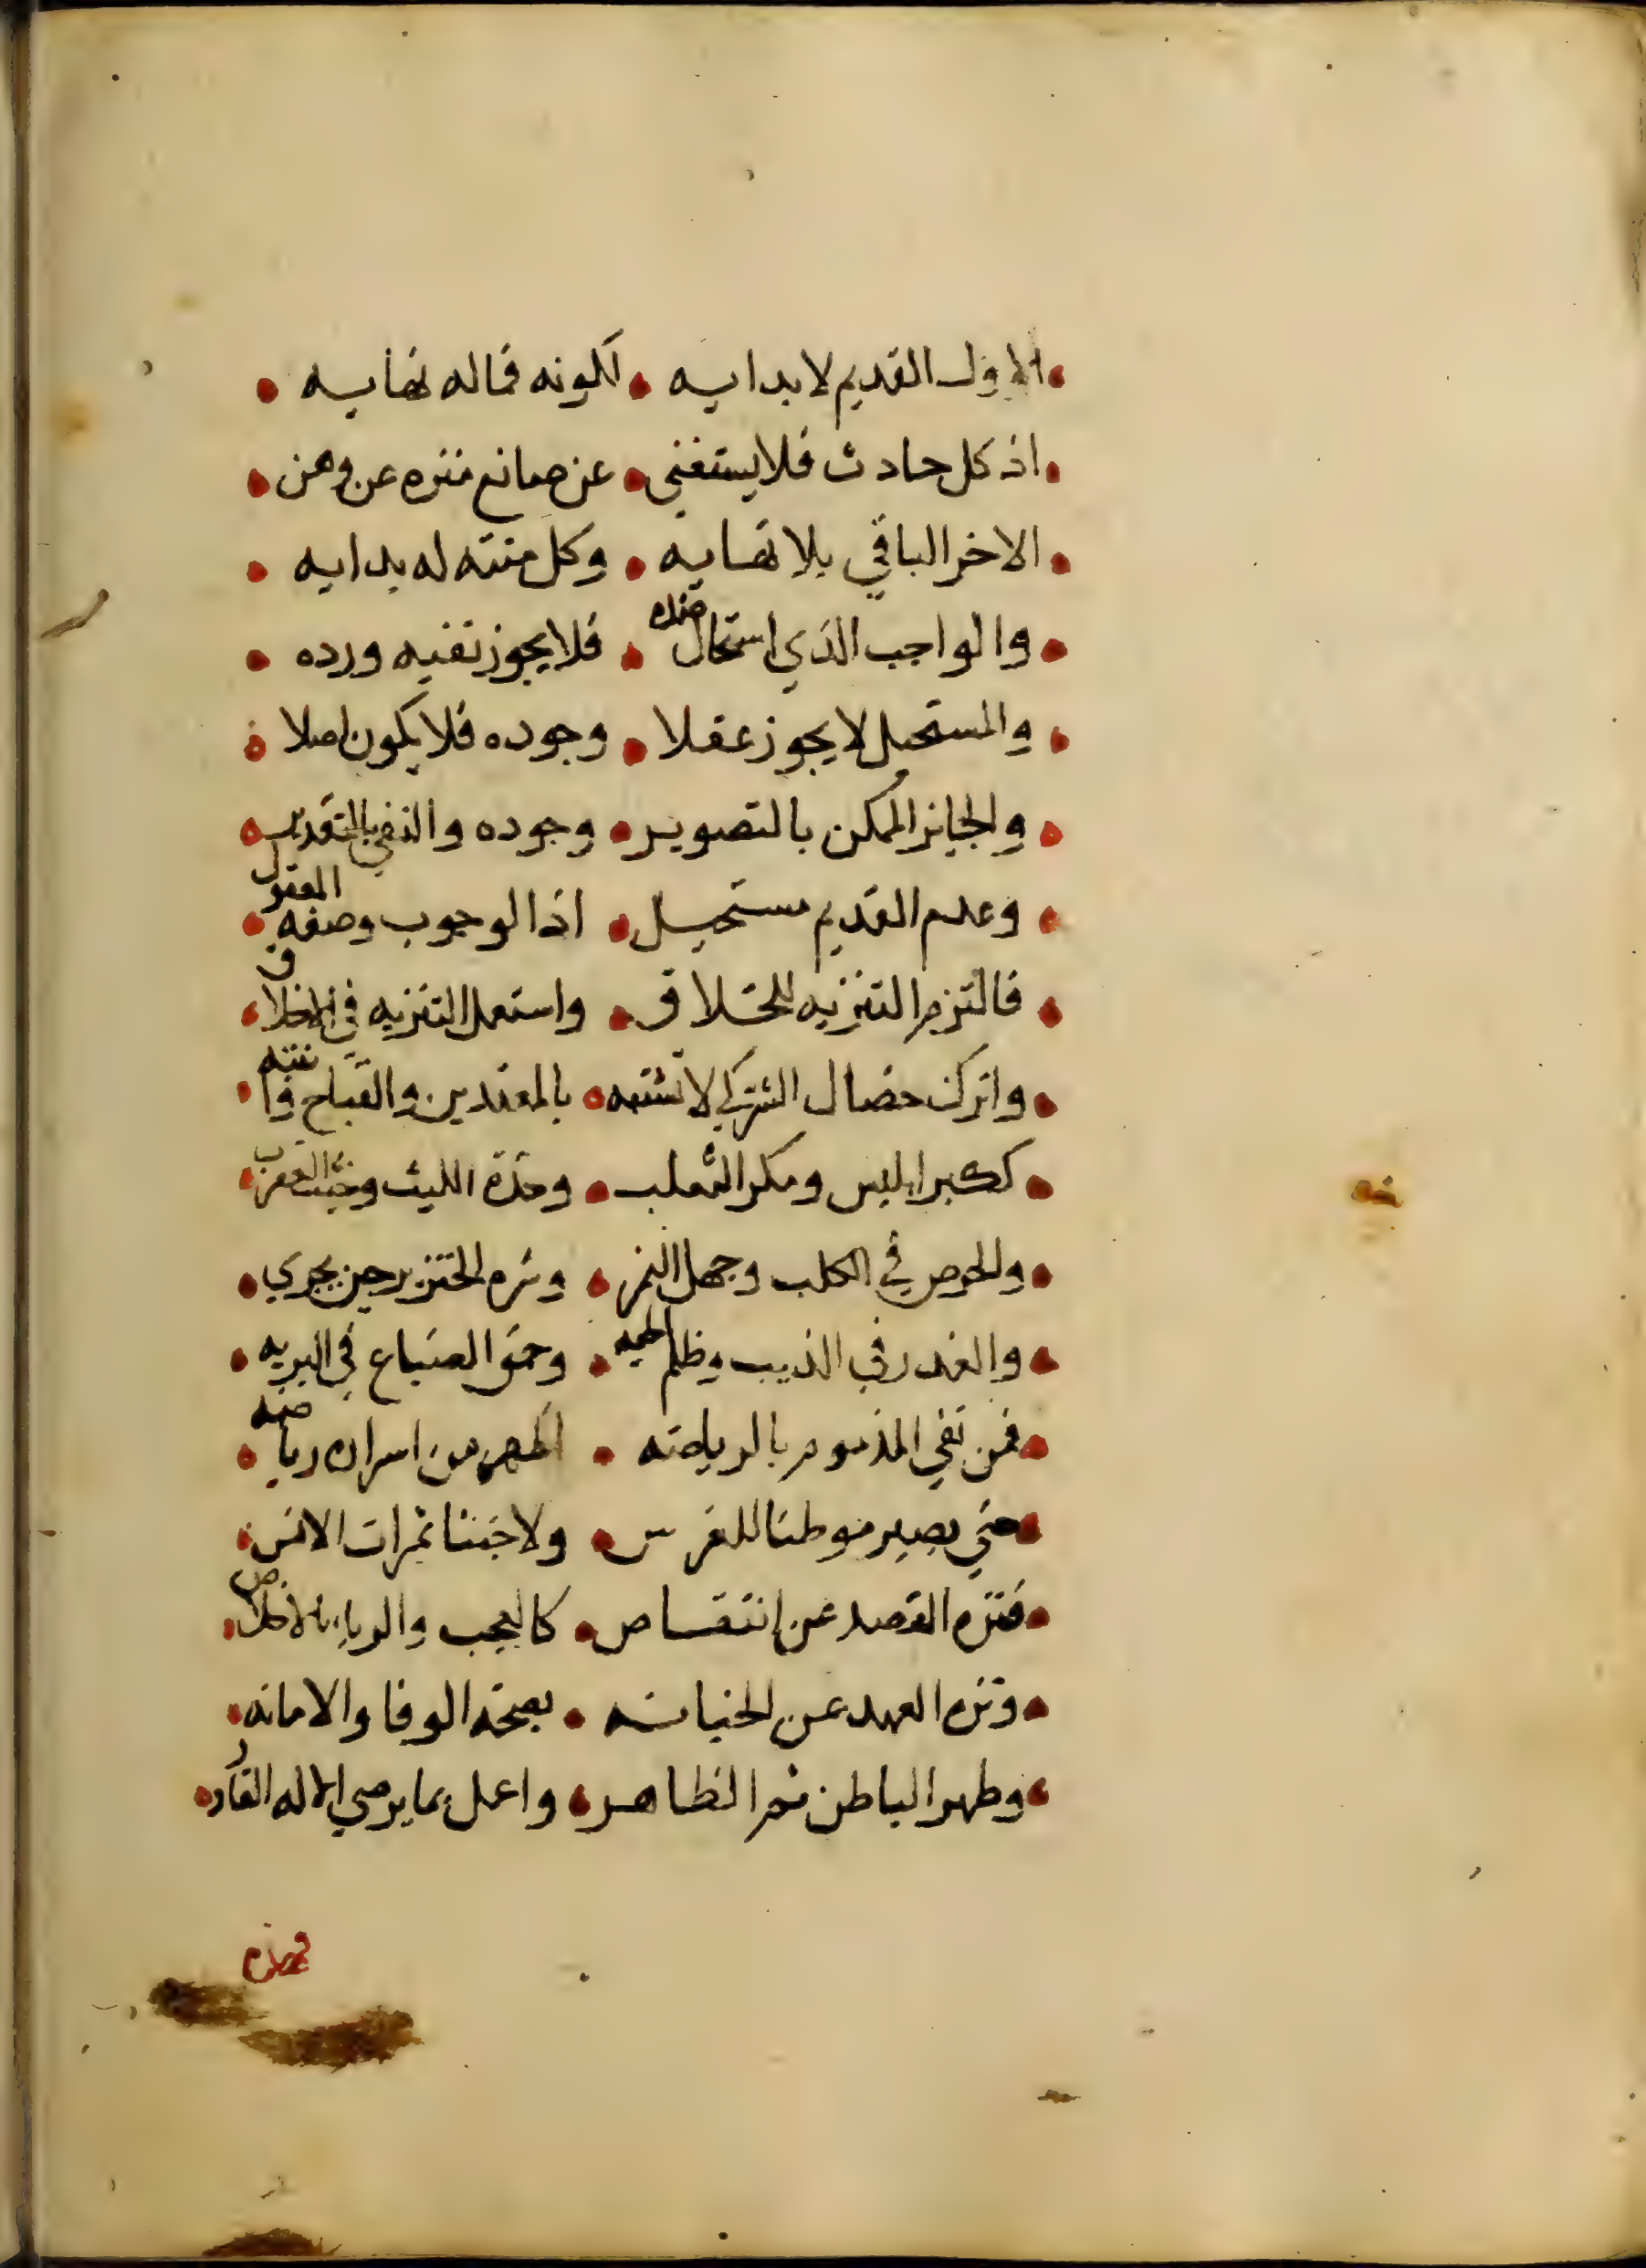 الاول القديم لا بدايه • لكونه فماله نهايه •
اذ كل حادث فلا يستغني • عن صانع منزه عن وهن •
الاخر الباقي بلا نهايه • وكل منته له بدايه •
والواجب الذي استحال ضده • فلا يجوز نفيه ورده •
والمستحيل لا يجوز عقلا • وجوده فلا يكون اصلا •
والجايز الممكن بالتصوير • وجوده والنفي بالتقدير •
وعدم القديم مستحيل • اذ الوجوب وصفه المعقول •
فالتزم التنزيه للخلاق • واستعمل التنزيه في الاخلاق •
واترك خصال الشر كي لا تشتبه • بالمعتدين والقباح وانتبه •
ككبر ابليس ومكر الثعلب • وحدة الليث وخبث العقرب •
والحرص في الكلب وجهل النمر • وشره الخنزير حين يجري •
والغدر في الذيب وظلم الحيه • وحمق الضباع في البريه •
فمن نفي المذموم بالرياضه • اظهر من اسراره رياضه •
حتي يصير موطنا للغرس • ولاجتنا ثمرات الانس •
فنزه القصد عن انتقاص • كالعجب والريا بالاخلاص •
ونزه العهد عن الخيانه • بصحة الوفا والامانه •
وطهر الباطن ثم الظاهر • واعمل بما يرضي الاله القادر •